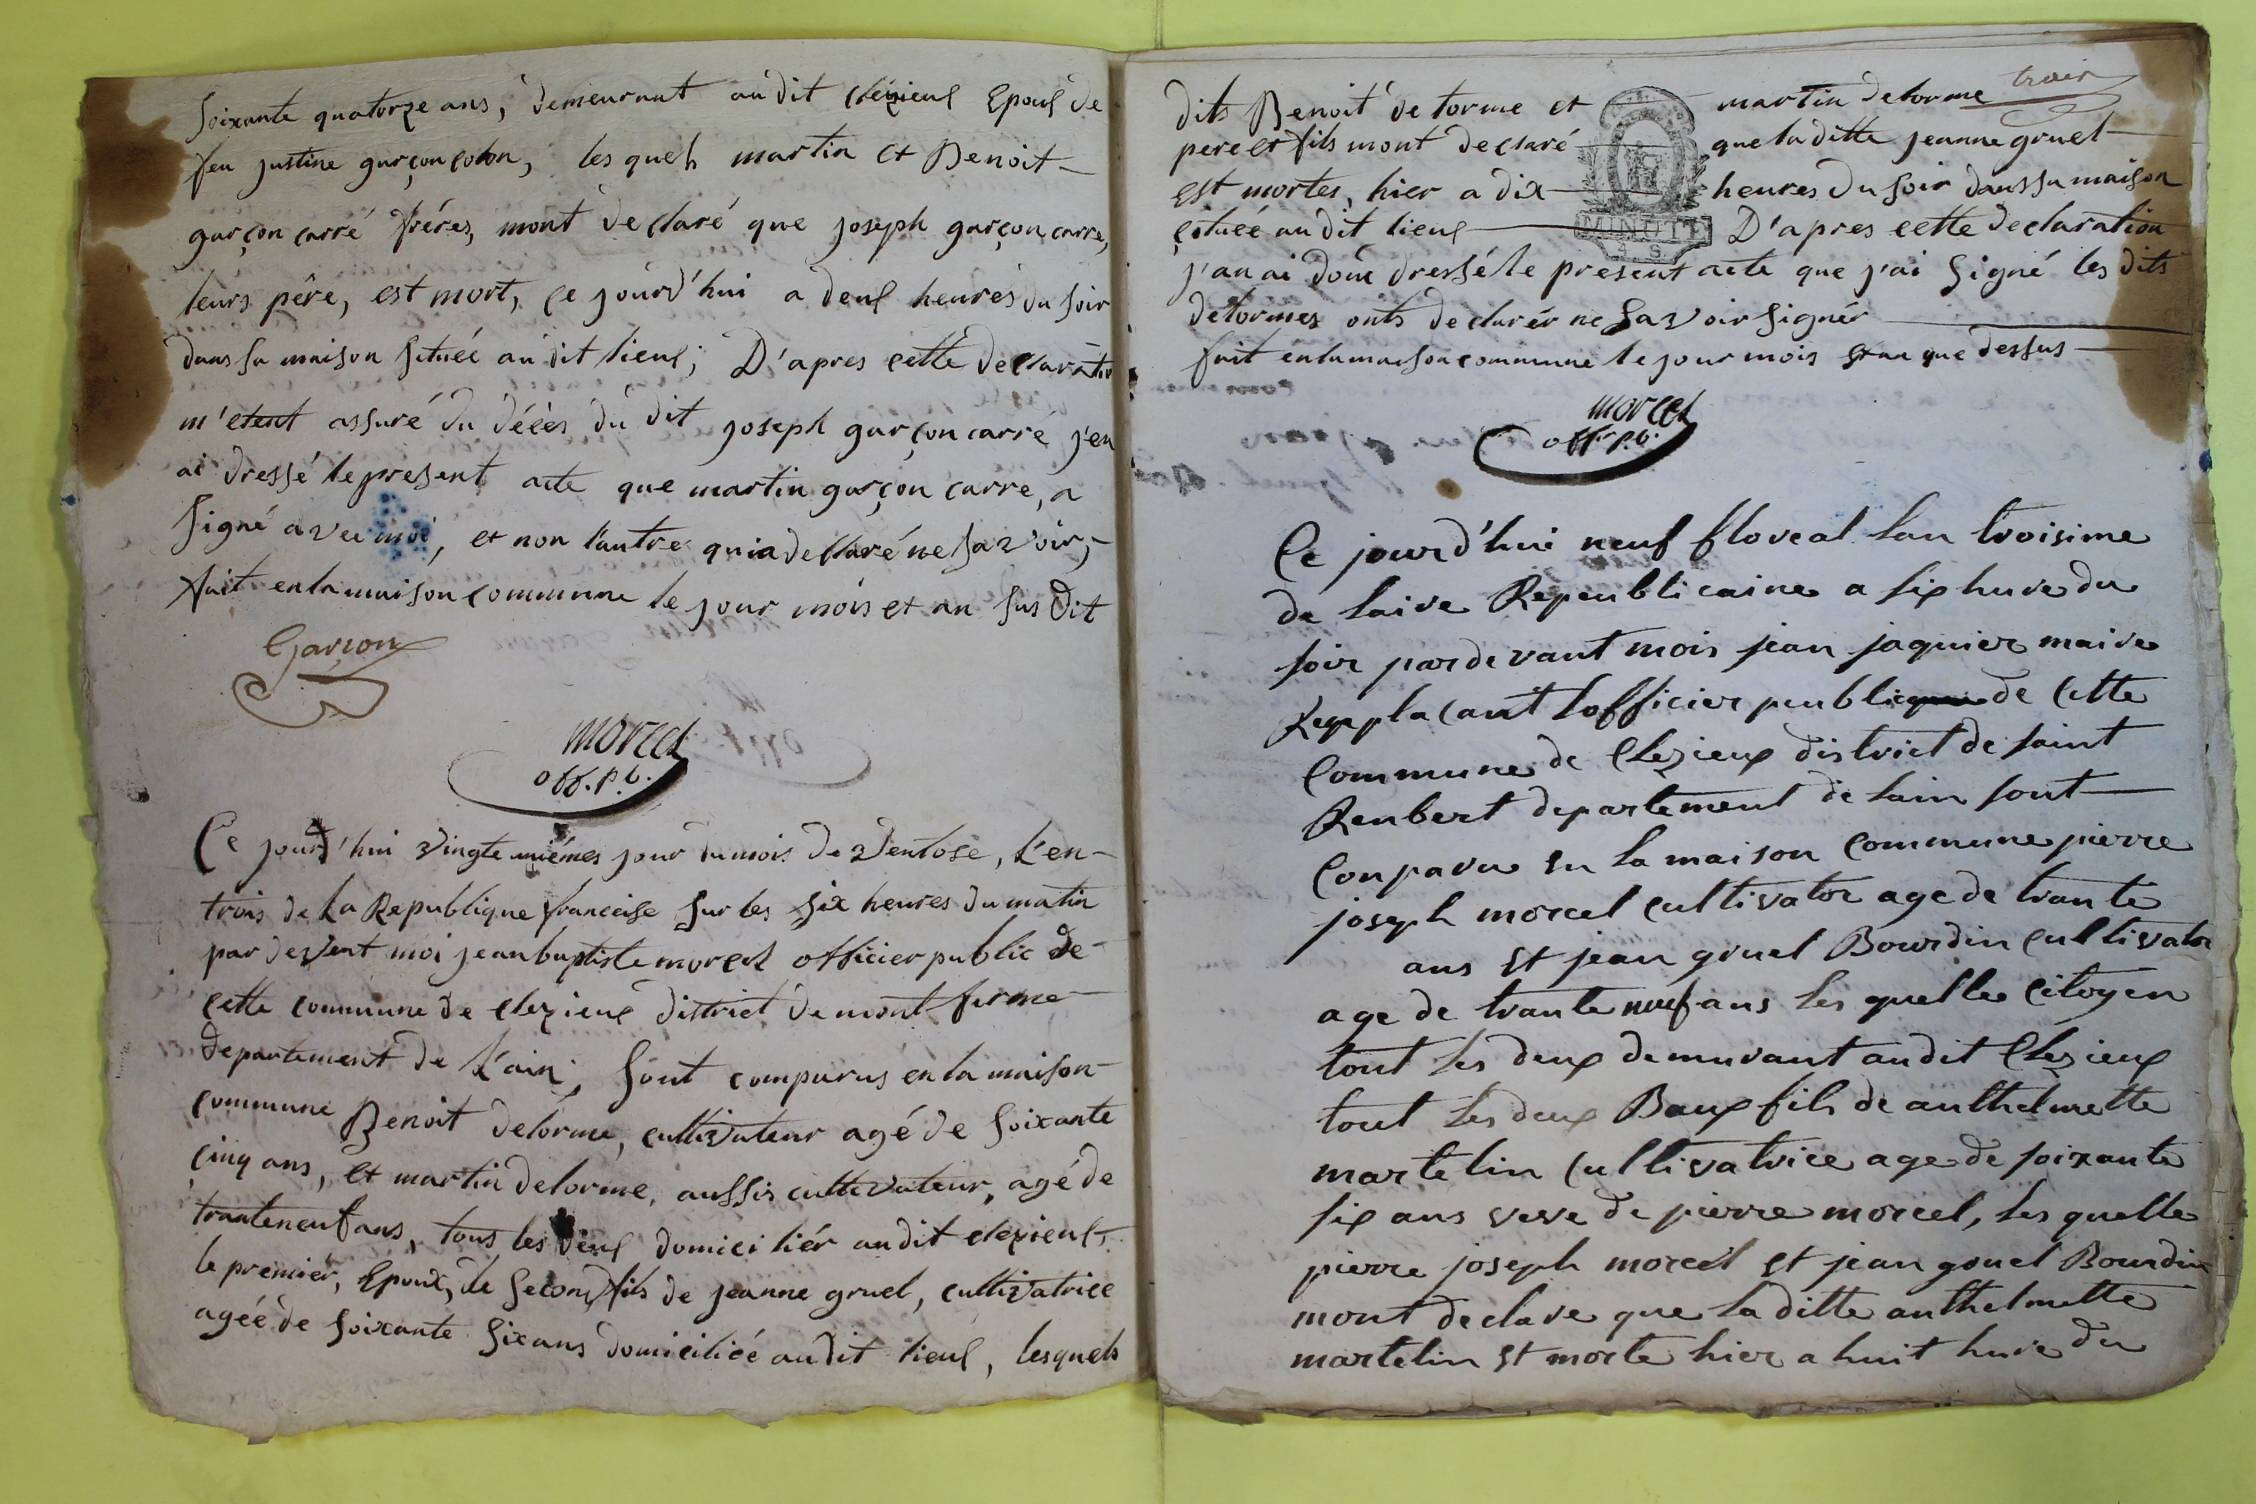 soixante quatorze ans, demeurant au dit clézieux Epoux de
feu justine garçon colon, les quels martin et Benoit
garçon carré fréres, mont declaré que joseph garçon carre,
leurs pêre, est mort, ce jourd'hui a deux heures du soir
dans sa maison situéé au dit lieux; D'apres cette declaration
m'etent assuré du décès du dit joseph garçon carré j'en
ai dressé le present acte que martin garçon carre, a
signé avec moi, et non l'autre qui a declaré ne savoir,
fait en la maison commune le jour mois et an sus dit
Garçon
morcel
off. p. b.
Ce jourd'hui vingte uniémes jour du mois de ventose, L'en
trois de La Republique francaise sur les six heures du matin
par devent moi jean baptiste morcel officier public de
cette commune de clezieux district de mont ferme
departement de L'ain, sont comparus en la maison
commune Benoit delorme, cultivateur agé de soixante
cinq ans, et martin delorme, aussis cultivateur, agé de
trante neuf ans, tous les deux domiciliér au dit clezieux,
le premier, Epoux, le second fils de jeanne gruel, cultivatrice
agéé de soixante six ans domiciliéé au dit lieux, lesquels
trois
dits Benoit de lorme et martin delorme
pere et fils mont declaré que la ditte jeanne gruel
est mortes, hier a dix heures du soir dans sa maison
cituéé au dit lieux D'apres cette declaration
MINUTE
j'an ai donc dressé le present acte que j'ai signé les dits
delormes onts declarér ne savoir signér
fait en la maison commune le jour mois et an que dessus
morcel
off. p. b.
Ce jourd'hui neuf floreal lan troisime
de laire Republicaine a six hure du
soir par devant mois jean jaquier maire
Remplacant lofficier peublique de cette
commune de Clezieux district de saint
Renbert departement de lain sont
conparu en la maison commune pierre
joseph morcel cultivator age de trante
ans et jean gruel Bourdin cultivator
age de trante neuf ans les quelle citoyen
tout les deux demurant au dit Clezieux
tout les deux Baux fils de anthelmette
martelin cultivatrice age de soixante
six ans veve de pierre morcel, les quelle
pierre joseph morcel et jean gruel Bourdin
mont declare que la ditte anthelmette
martelin et morte hier a huit hure du